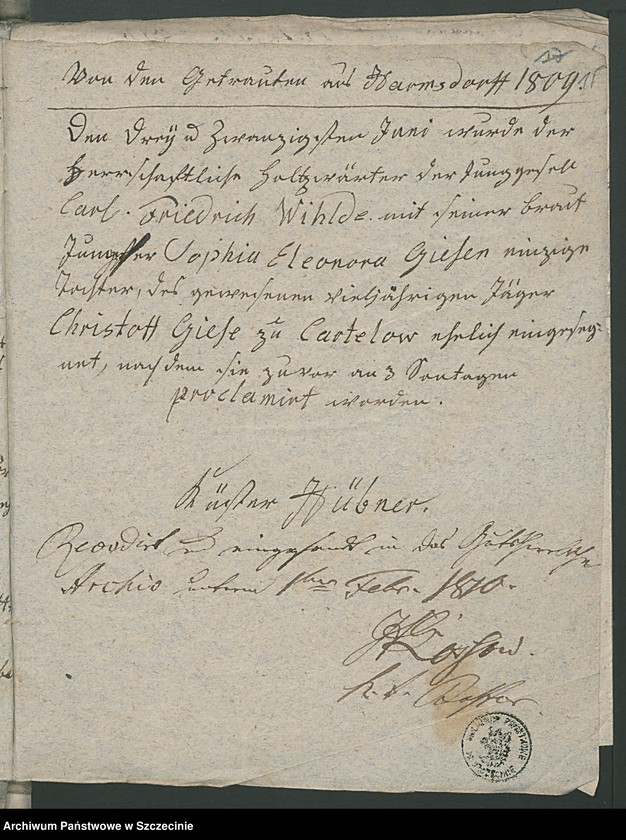 Von den Getrauten aus Harmsdorff 1809.
Den Drey u Zwanzigsten Juni wurde der
Herrschaftliche Holtzwärter der Junggesell
Carl Friedrich Wihlde mit seiner Braut
Jungfer Sophia Eleonora Giesen einzige
Tochter, des gewesenen vieljährigen Jäger
Christoff Giese zu Cartelow ehelich eingeseg-
net, nachdem sie zuvor an 3 Sontagen
proclamirt worden.
Küster Hübner.
und eingesandt in das
Archiv unterm 1ten Febr. 1810.
Archiwum Państwowe w Szczecinie